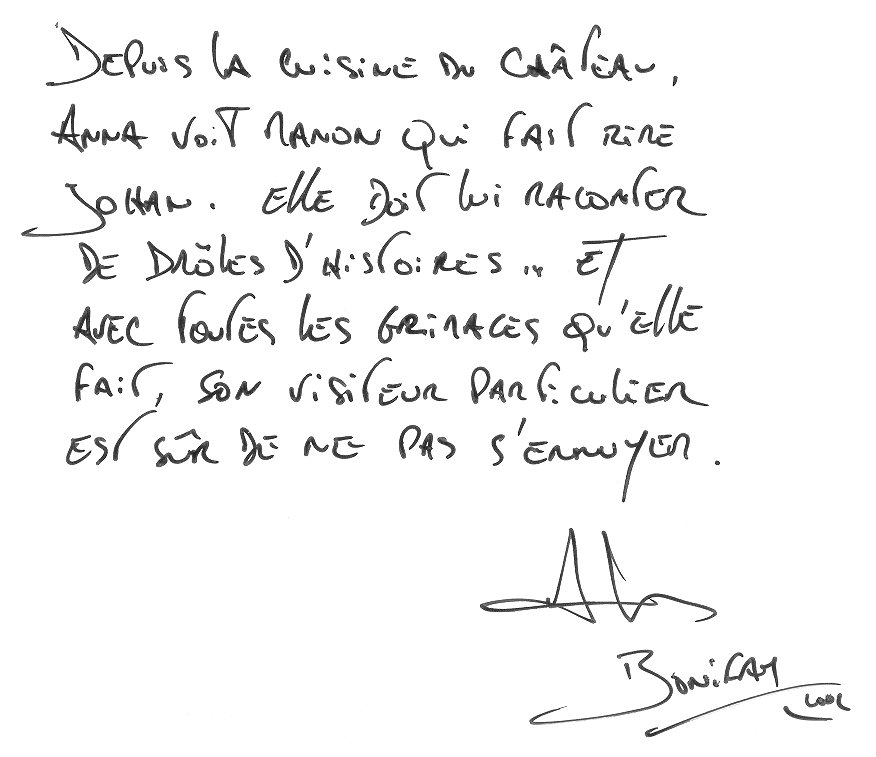 Depuis la cuisine du château,
Anna voit Manon qui fait rire
Johan. Elle doit lui raconter
de drôles d'histoires... et
avec toutes les grimaces qu'elle
fait, son visiteur particulier
est sûr de ne pas s'ennuyer.
Bonifay